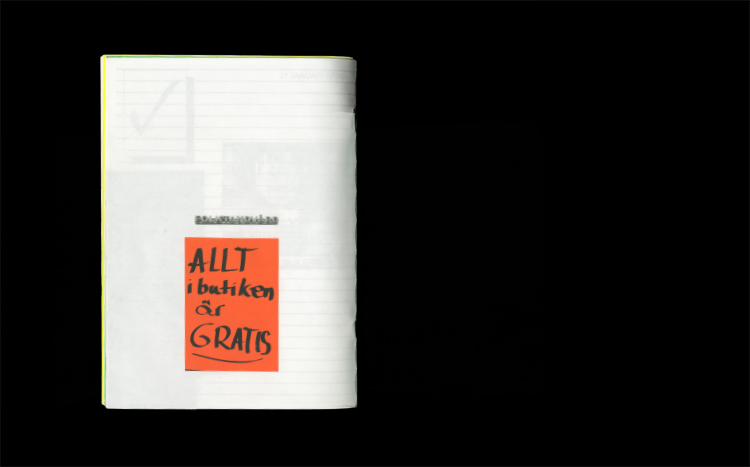 ALLT
i butiken
är
GRATIS